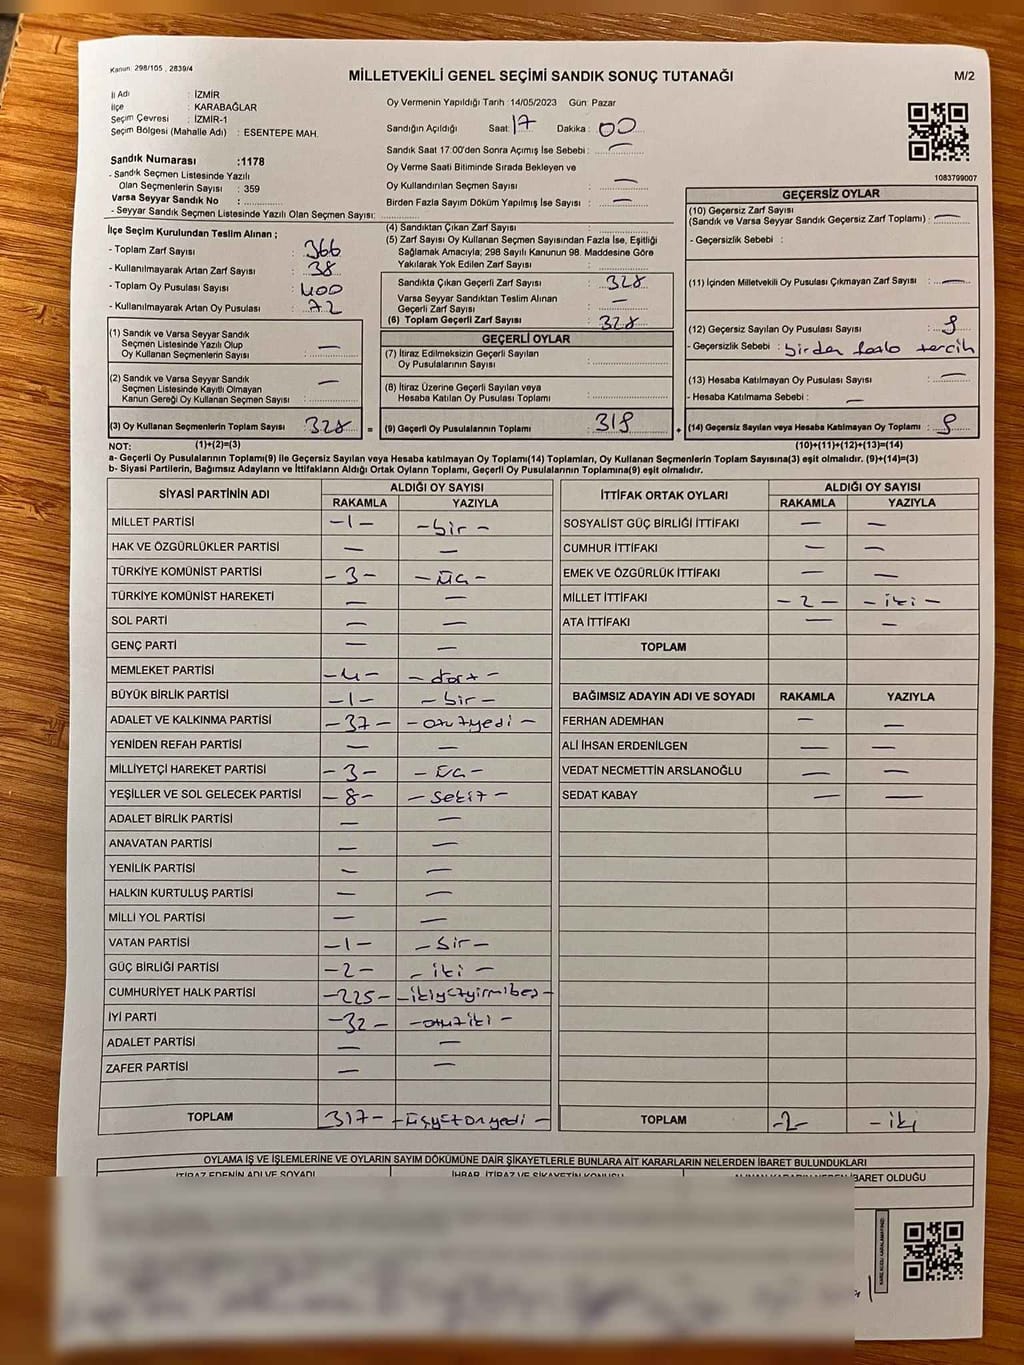 Kanun: 298/105 , 2839/4
MİLLETVEKİLİ GENEL SEÇİMİ SANDIK SONUÇ TUTANAĞI
M/2
İl Adı : İZMİR
İlçe : KARABAĞLAR
Seçim Çevresi : İZMİR-1
Seçim Bölgesi (Mahalle Adı) : ESENTEPE MAH.
Sandık Numarası :1178
- Sandık Seçmen Listesinde Yazılı
Olan Seçmenlerin Sayısı : 359
Varsa Seyyar Sandık No :
- Seyyar Sandık Seçmen Listesinde Yazılı Olan Seçmen Sayısı:
Oy Vermenin Yapıldığı Tarih :14/05/2023 Gün: Pazar
Sandığın Açıldığı Saat: 17 Dakika: 00
Sandık Saat 17:00'den Sonra Açımış İse Sebebi : —
Oy Verme Saati Bitiminde Sırada Bekleyen ve
Oy Kullandırılan Seçmen Sayısı : —
Birden Fazla Sayım Döküm Yapılmış İse Sayısı : —
1083799007
İlçe Seçim Kurulundan Teslim Alınan ;
- Toplam Zarf Sayısı : 366
- Kullanılmayarak Artan Zarf Sayısı : 38
- Toplam Oy Pusulası Sayısı : 400
- Kullanılmayarak Artan Oy Pusulası : 72
(1) Sandık ve Varsa Seyyar Sandık
Seçmen Listesinde Yazılı Olup
Oy Kullanan Seçmenlerin Sayısı : —
(2) Sandık ve Varsa Seyyar Sandık
Seçmen Listesinde Kayıtlı Olmayan
Kanun Gereği Oy Kullanan Seçmen Sayısı : —
(3) Oy Kullanan Seçmenlerin Toplam Sayısı : 328 =
(4) Sandıktan Çıkan Zarf Sayısı :
(5) Zarf Sayısı Oy Kullanan Seçmen Sayısından Fazla İse, Eşitliği
Sağlamak Amacıyla; 298 Sayılı Kanunun 98. Maddesine Göre
Yakılarak Yok Edilen Zarf Sayısı :
Sandıkta Çıkan Geçerli Zarf Sayısı : 328
Varsa Seyyar Sandıktan Teslim Alınan
Geçerli Zarf Sayısı : —
(6) Toplam Geçerli Zarf Sayısı : 328
GEÇERLİ OYLAR
(7) İtiraz Edilmeksizin Geçerli Sayılan
Oy Pusulalarının Sayısı :
(8) İtiraz Üzerine Geçerli Sayılan veya
Hesaba Katılan Oy Pusulası Toplamı :
(9) Geçerli Oy Pusulalarının Toplamı : 319 +
GEÇERSİZ OYLAR
(10) Geçersiz Zarf Sayısı
(Sandık ve Varsa Seyyar Sandık Geçersiz Zarf Toplamı) : —
- Geçersizlik Sebebi :
(11) İçinden Milletvekili Oy Pusulası Çıkmayan Zarf Sayısı : —
(12) Geçersiz Sayılan Oy Pusulası Sayısı : 9
- Geçersizlik Sebebi : birden fazla tercih
(13) Hesaba Katılmayan Oy Pusulası Sayısı : —
- Hesaba Katılmama Sebebi : —
(14) Geçersiz Sayılan veya Hesaba Katılmayan Oy Pusulası Toplamı : 9
NOT: (1)+(2)=(3) (10)+(11)+(12)+(13)=(14)
a- Geçerli Oy Pusulasının Toplamı(9) ile Geçersiz Sayılan veya Hesaba katılmayan Oy Pusulası Toplamı(14) Toplamları, Oy Kullanan Seçmenlerin Toplam Sayısına(3) eşit olmalıdır. (9)+(14)=(3)
b- Siyasi Partilerin, Bağımsız Adayların ve İttifakların Aldığı Ortak Oyların Toplamı, Geçerli Oy Pusulalarının Toplamına(9) eşit olmalıdır.
SİYASİ PARTİNİN ADI ALDIĞI OY SAYISI
RAKAMLA YAZIYLA
MİLLET PARTİSİ -1- -bir-
HAK VE ÖZGÜRLÜKLER PARTİSİ — —
TÜRKİYE KOMÜNİST PARTİSİ -3- -üç-
TÜRKİYE KOMÜNİST HAREKETİ — —
SOL PARTİ — —
GENÇ PARTİ — —
MEMLEKET PARTİSİ -4- -dört-
BÜYÜK BİRLİK PARTİSİ -1- -bir-
ADALET VE KALKINMA PARTİSİ -37- -otuzyedi-
YENİDEN REFAH PARTİSİ — —
MİLLİYETÇİ HAREKET PARTİSİ -3- -üç-
YEŞİLLER VE SOL GELECEK PARTİSİ -8- -sekiz-
ADALET BİRLİK PARTİSİ — —
ANAVATAN PARTİSİ — —
YENİLİK PARTİSİ — —
HALKIN KURTULUŞ PARTİSİ — —
MİLLİ YOL PARTİSİ — —
VATAN PARTİSİ -1- -bir-
GÜÇ BİRLİĞİ PARTİSİ -2- -iki-
CUMHURİYET HALK PARTİSİ -225- -ikiyüzyirmibeş-
İYİ PARTİ -32- -otuziki-
ADALET PARTİSİ — —
ZAFER PARTİSİ — —
TOPLAM 317- -üçyüzonyedi-
İTTİFAK ORTAK OYLARI ALDIĞI OY SAYISI
RAKAMLA YAZIYLA
SOSYALİST GÜÇ BİRLİĞİ İTTİFAKI — —
CUMHUR İTTİFAKI — —
EMEK VE ÖZGÜRLÜK İTTİFAKI — —
MİLLET İTTİFAKI -2- -iki-
ATA İTTİFAKI — —
TOPLAM
BAĞIMSIZ ADAYIN ADI VE SOYADI RAKAMLA YAZIYLA
FERHAN ADEMHAN — —
ALİ İHSAN ERDENİLGEN — —
VEDAT NECMETTİN ARSLANOĞLU — —
SEDAT KABAY — —
TOPLAM -2- -iki
OYLAMA İŞ VE İŞLEMLERİNE VE OYLARIN SAYIM DÖKÜMÜNE DAİR ŞİKAYETLERLE BUNLARA AİT KARARLARIN NELERDEN İBARET BULUNDUKLARI
İTİRAZ EDENİN ADI VE SOYADI İHBAR, İTİRAZ VE ŞİKAYETİN KONUSU ALINAN KARARIN NEDEN İBARET OLDUĞU